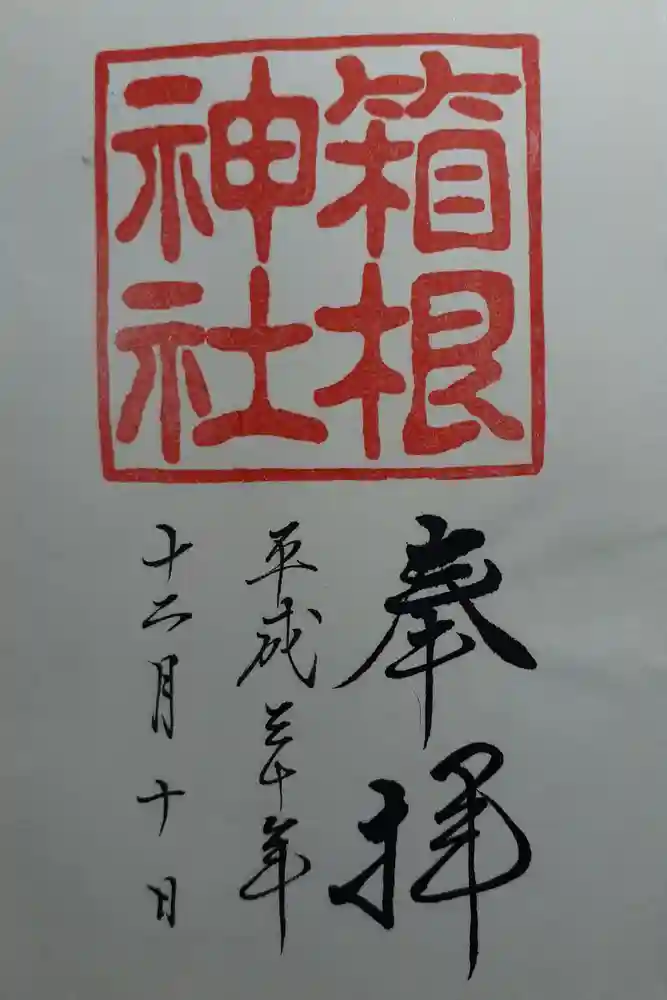 箱根
神社
奉拝
平成三十年
十二月十日